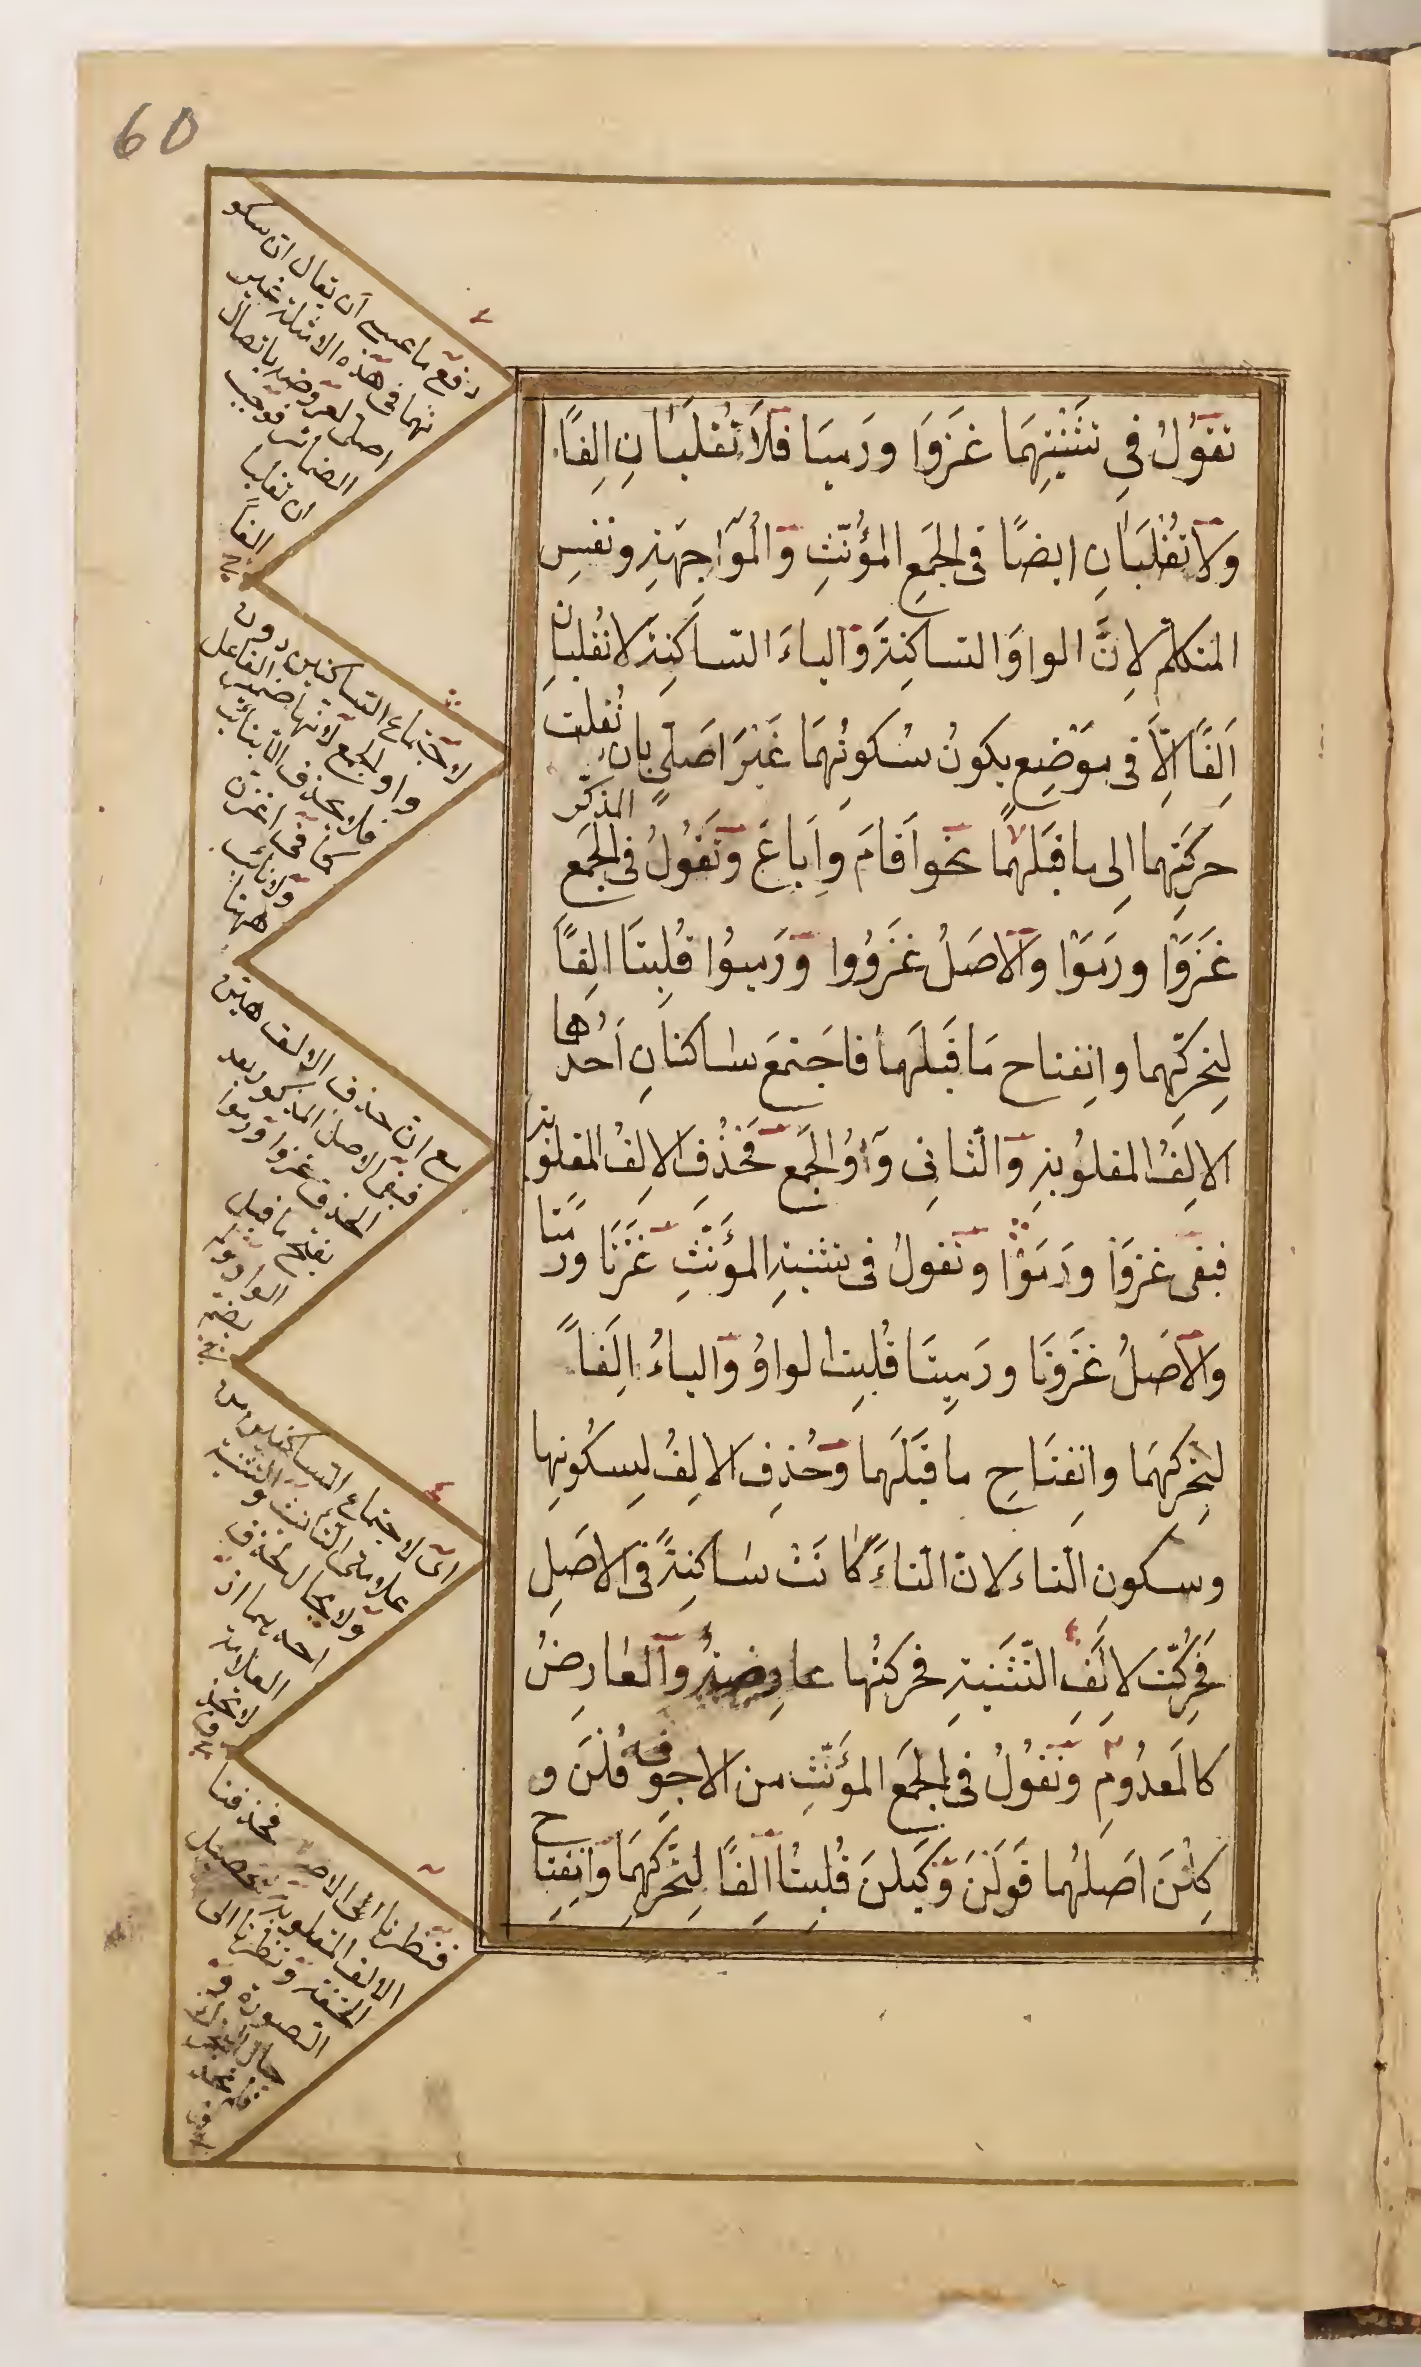 60
تقولُ فِي تثنيتِهِمَا غَزَوَا ورَميَا فَلَا تُقلَبَانِ الِفًا
ولا تُقْلَبَانِ ايضًا فى الجمَعِ المؤُنّثِ وَالْمُوَاجِهَةِ ونفسِ
المتكلّم لِانَّ الواوَ الساكِنةَ وَالياءَ الساَكِنةَ لا تُقلبانِ
اَلِفًا اِلَّا فى مَوْضِعٍ يكونُ سُكونُهُمَا غَيْرَ اصَلىٍّ بان نُقلت
حركَتِهما اِلى ما قَبلَهُمَا نحَو اَقَامَ واَباعَ وتَقُولُ فى الجَمع المذكّر
غَزَوْا ورَمَوْا وَالاصَلُ غَزَوُوا وَرَميُوا قُلِبتَا الِفًا
لِتحرّكِهما وانِفتاح مَا قَبلَهما فاجَتمعَ ساكنانِ اَحَدُهَا
الالِفُ المقلُوبَةِ وَالثّانِى وَاوُ الجَمع فَحُذِفَ الالِفُ المقلوبة
فبقى غزَوَا ورَمَوْا وتَقولُ فى تثنيةِ المؤَنّثِ غَزَتَا ورَمَتا
وَالاَصَلُ غَزَوَتَا ورَميتَا قُلبت الواوُ وَالياءُ الِفاً
لِتَحَرّكِهمَا وانفِتَاحِ ما قبَلَهما وَحُذِفَ الالِفُ لِسكُونِها
وسكونِ التاءِ لانّ التاءَ كَانَتْ سَاكنةً فى الاصَلِ
فَحُرِّكَت لالَفِ التَثَنيةِ فحركتُها عارِضةٌ وَالعارِضُ
كالمَعدُومِ وَتَقُولُ فى الجمَعِ المؤَنّثِ من الاجوفِ قُلنَ و
كِلْنَ اصَلُهما قَوَلْنَ وَكَيَلنَ قُلبتُا اَلِفًا لِتَحَرّكِهمَا وَانِفتاح
دفع ما عسى أن يقال ان سكو
نهما فى هذه الامثلة غير
اصلى لعروضه باتصال
الضمائر فوجب
ان تقلبا
الفاً
لاجتماع الساكنين دون
واو الجمع لانها ضمير الفاعل
فلا يحذف الّا بنائب
كما فى اغزنّ
ولا نائب
ههنا
مع انّ حذف الالف هين
فبقى الاصل المذكور بعد
الحذف غزوا ورموا
بفتح ما قبل
الواو ولم
يضم
اى لاجتماع الساكنين من
علامتى التأنيث والتثنية
ولا مجال لحذف
احديهما اذ
العلامة
لا تحذ
ف
فنظرنا الى الاصل فحذفنا
الالف المقلوبة لتحصيل
الخفة ونظرنا الى
الصورة و